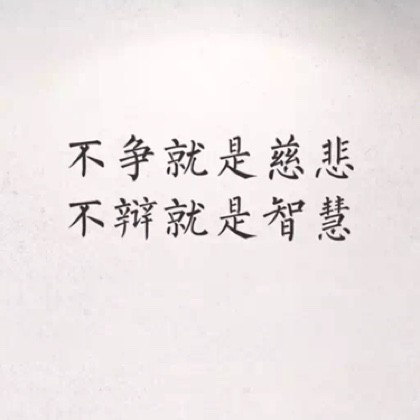 不争就是慈悲
不辩就是智慧